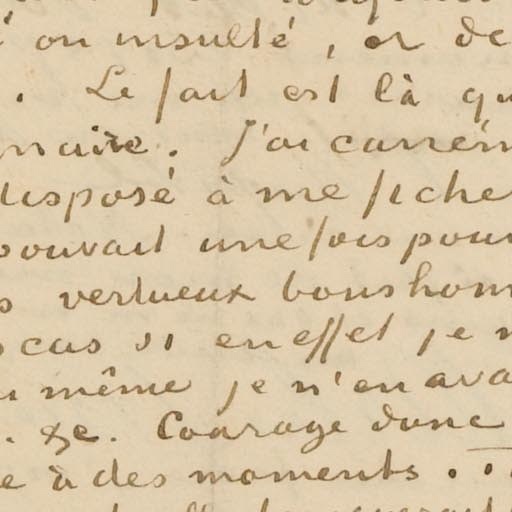 on insulté, or de
. Le fait est là qu
naire. J'ai carrém
disposé à me ficher
pouvait une fois pour
s vertueux bonshom
cas si en effet je n
même je n'en ava
. &c. Courage donc
e à des moments . .